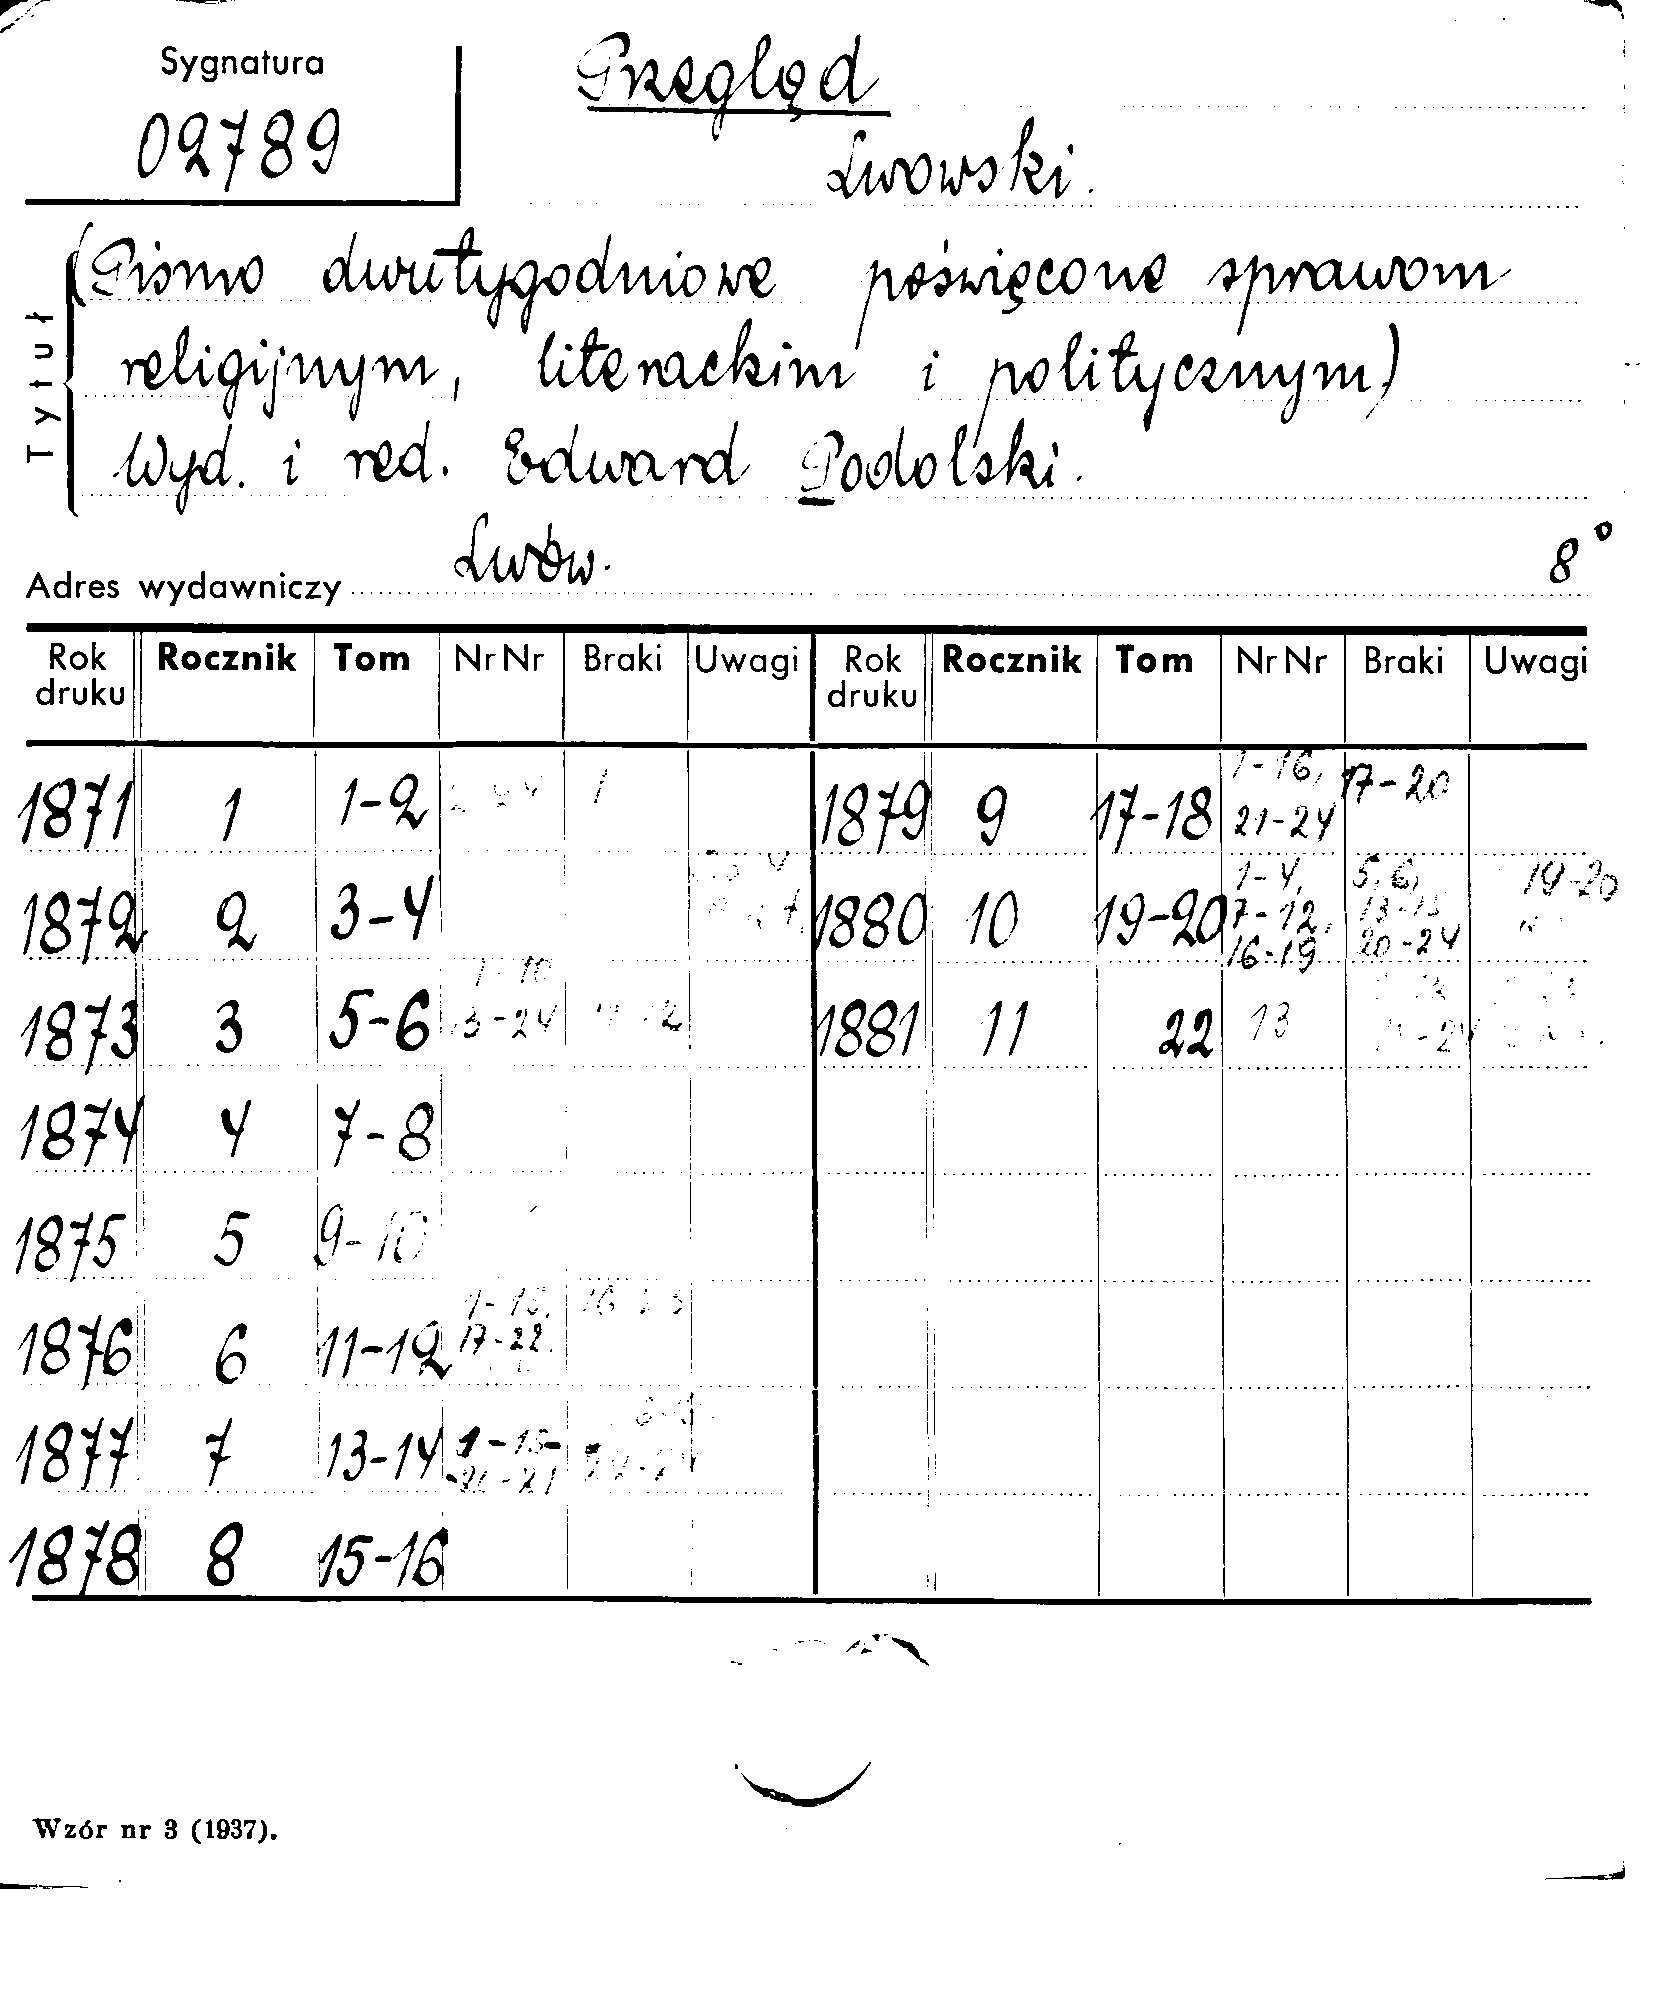 Sygnatura
02789
Przegląd
Lwowski.
Tytuł
(Pismo dwutygodniowe poświęcone sprawom
religijnym, literackim i politycznym)
Wyd. i red. Edward Podolski.
Lwów.
8°
Adres wydawniczy
Rok druku Rocznik Tom Nr Nr Braki Uwagi Rok druku Rocznik Tom Nr Nr Braki Uwagi
1871 1 1-2 1 1879 9 17-18 1-16, 21-24 17-20
1872 2 3-4 1880 10 19-20 1-4, 7-12, 16-19 5, 6, 13-15 20-24 19-20
1873 3 5-6 1-10 13-24 1881 11 22 13
1874 4 7-8
1875 5 9-10
1876 6 11-12 1-15, 17-22
1877 7 13-14 1-15-
1878 8 15-16
Wzór nr 3 (1937).